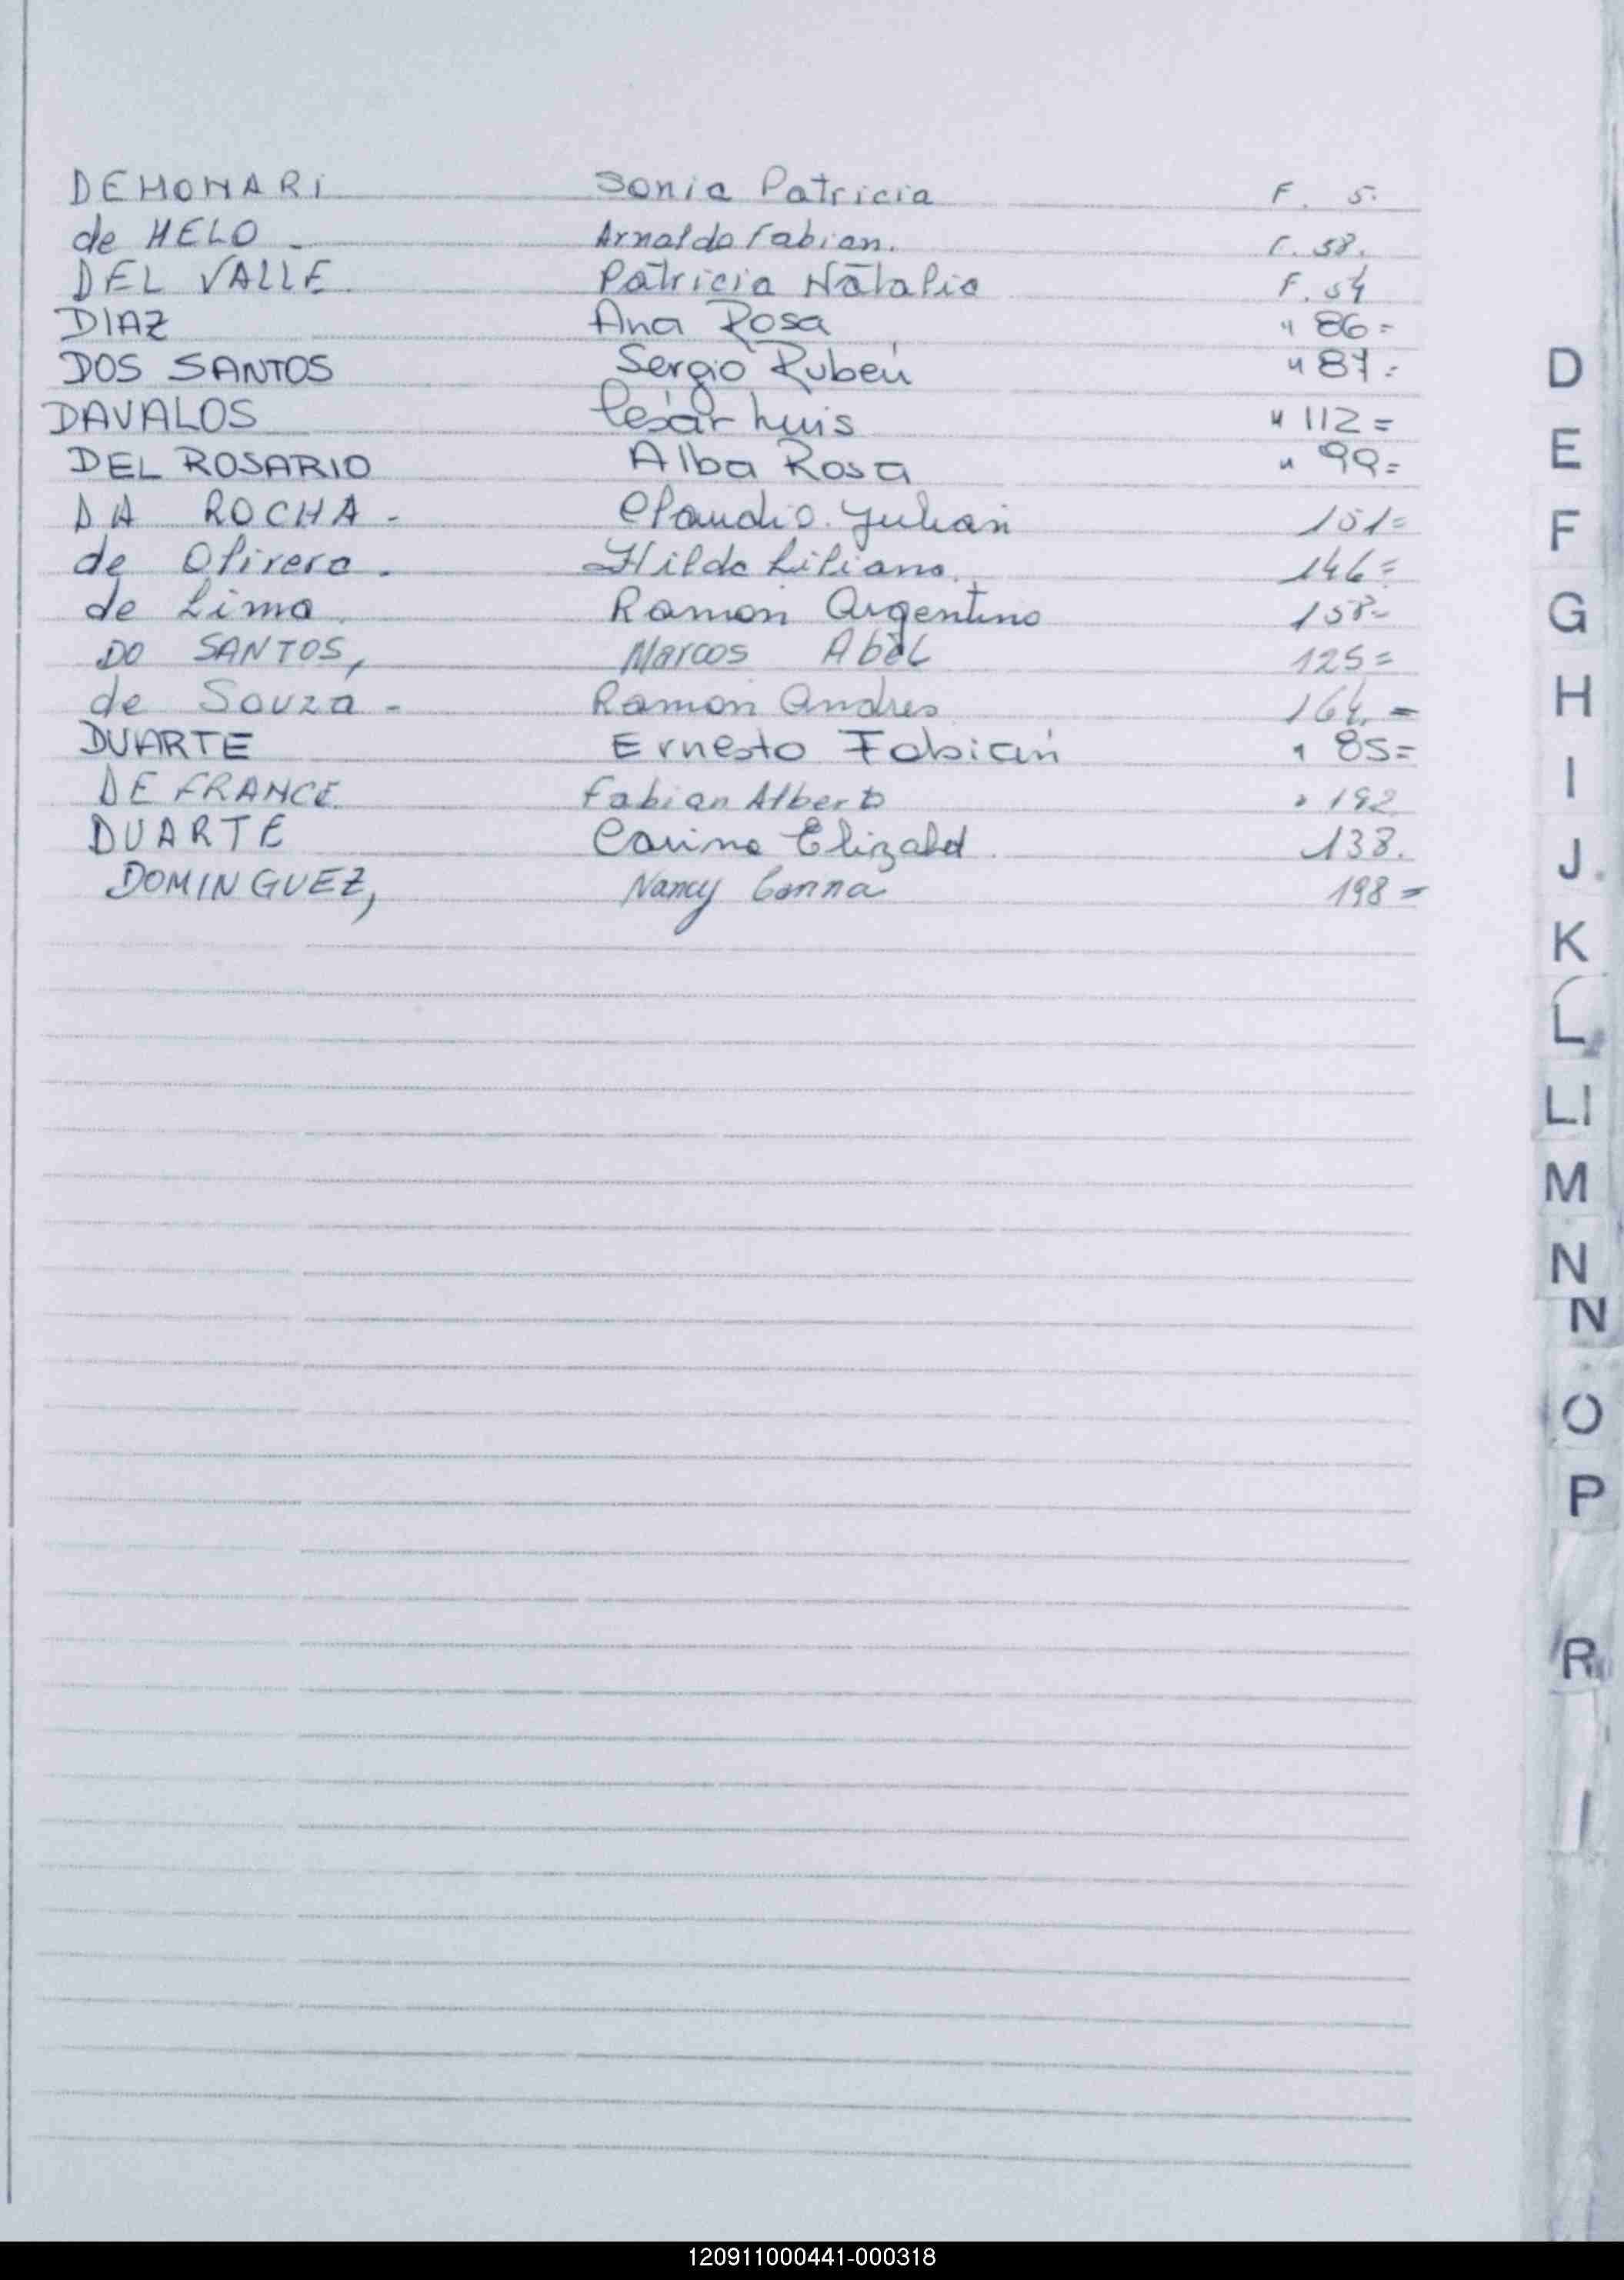 DEMONARI Sonia Patricia F. 5.
de MELO - Arnaldo Fabian. F. 58.
DEL VALLE. Patricia Natalia F. 54
DIAZ Ana Rosa " 86=
DOS SANTOS Sergio Rubén " 87=
DAVALOS César Luis " 112=
DEL ROSARIO Alba Rosa " 99=
DA ROCHA - Claudio Julian 151=
de Olivera - Hilda Liliana. 146=
de Lima Ramón Argentino 158=
DO SANTOS, Marcos Abel 125=
de Souza - Ramon Andres 164. =
DUARTE Ernesto Fabián " 85=
DE FRANCE Fabian Alberto " 192
DUARTE Carina Elizabet 138.
DOMINGUEZ, Nancy 198=
D
E
F
G
H
I
J
K
L
LL
M
N
N
O
P
R
120911000441-000318